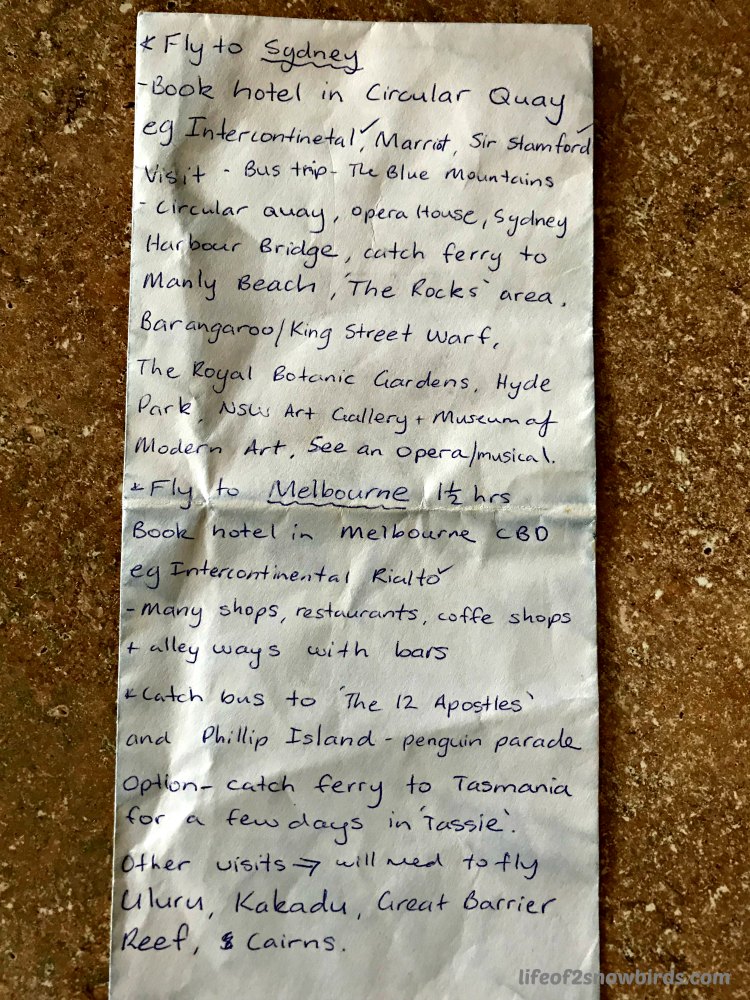 * Fly to Sydney
- Book hotel in Circular Quay
eg Intercontinetal✓, Marriot, Sir Stamford✓
Visit - Bus trip - The Blue Mountains
- Circular quay, Opera House, Sydney
Harbour Bridge, catch ferry to
Manly Beach, 'The Rocks' area,
Barangaroo/King Street Warf,
The Royal Botanic Gardens, Hyde
Park, NSW Art Gallery + Museum of
Modern Art, See an Opera/musical.
* Fly to Melbourne 1½ hrs
Book hotel in Melbourne CBD
eg Intercontinental Rialto✓
- Many shops, restaurants, coffe shops
+ alley ways with bars
* Catch bus to 'The 12 Apostles'
and Phillip Island - penguin parade
Option - catch ferry to Tasmania
for a few days in 'Tassie'.
Other visits → will need to fly
Uluru, Kakadu, Great Barrier
Reef, & Cairns.
lifeof2snowbirds.com